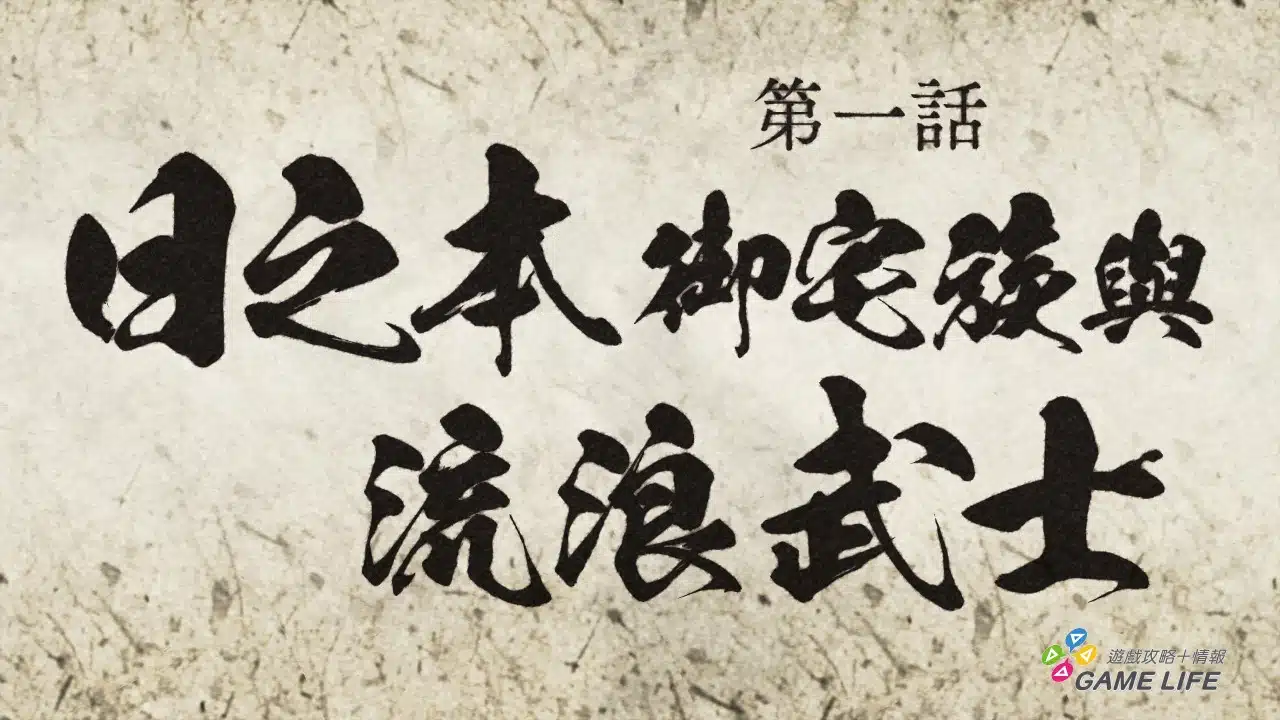 第一話
日之本 御宅族與
流浪武士
遊戲攻略＋情報
GAME LIFE